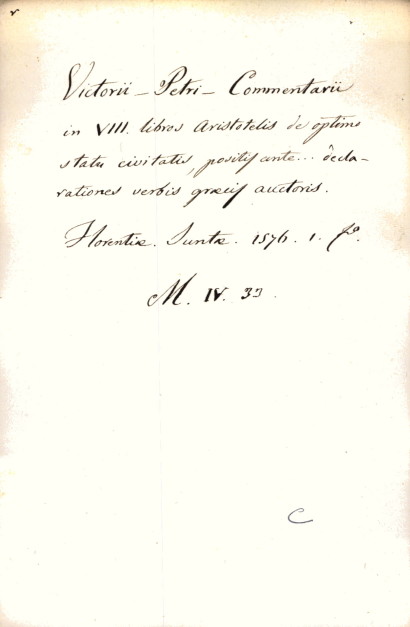 Victorii - Petri - Commentarii
in VIII. libros Aristotelis de optimo
statu civitatis, positis ante... decla-
rationes verbis græcis auctoris.
Florentiæ. Juntæ. 1576. 1. fo.
M. IV. 33.
C